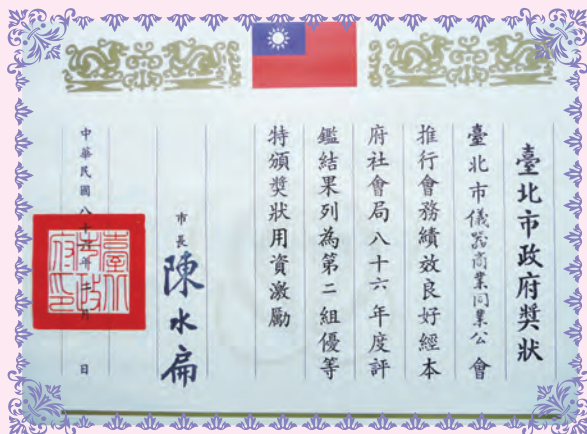 臺北市政府獎狀
臺北市儀器商業同業公會
推行會務績效良好經本
府社會局八十六年度評
鑑結果列為第二組優等
特頒獎狀用資激勵
市長 陳水扁
中華民國八十六年十二月 日
臺北市政府印